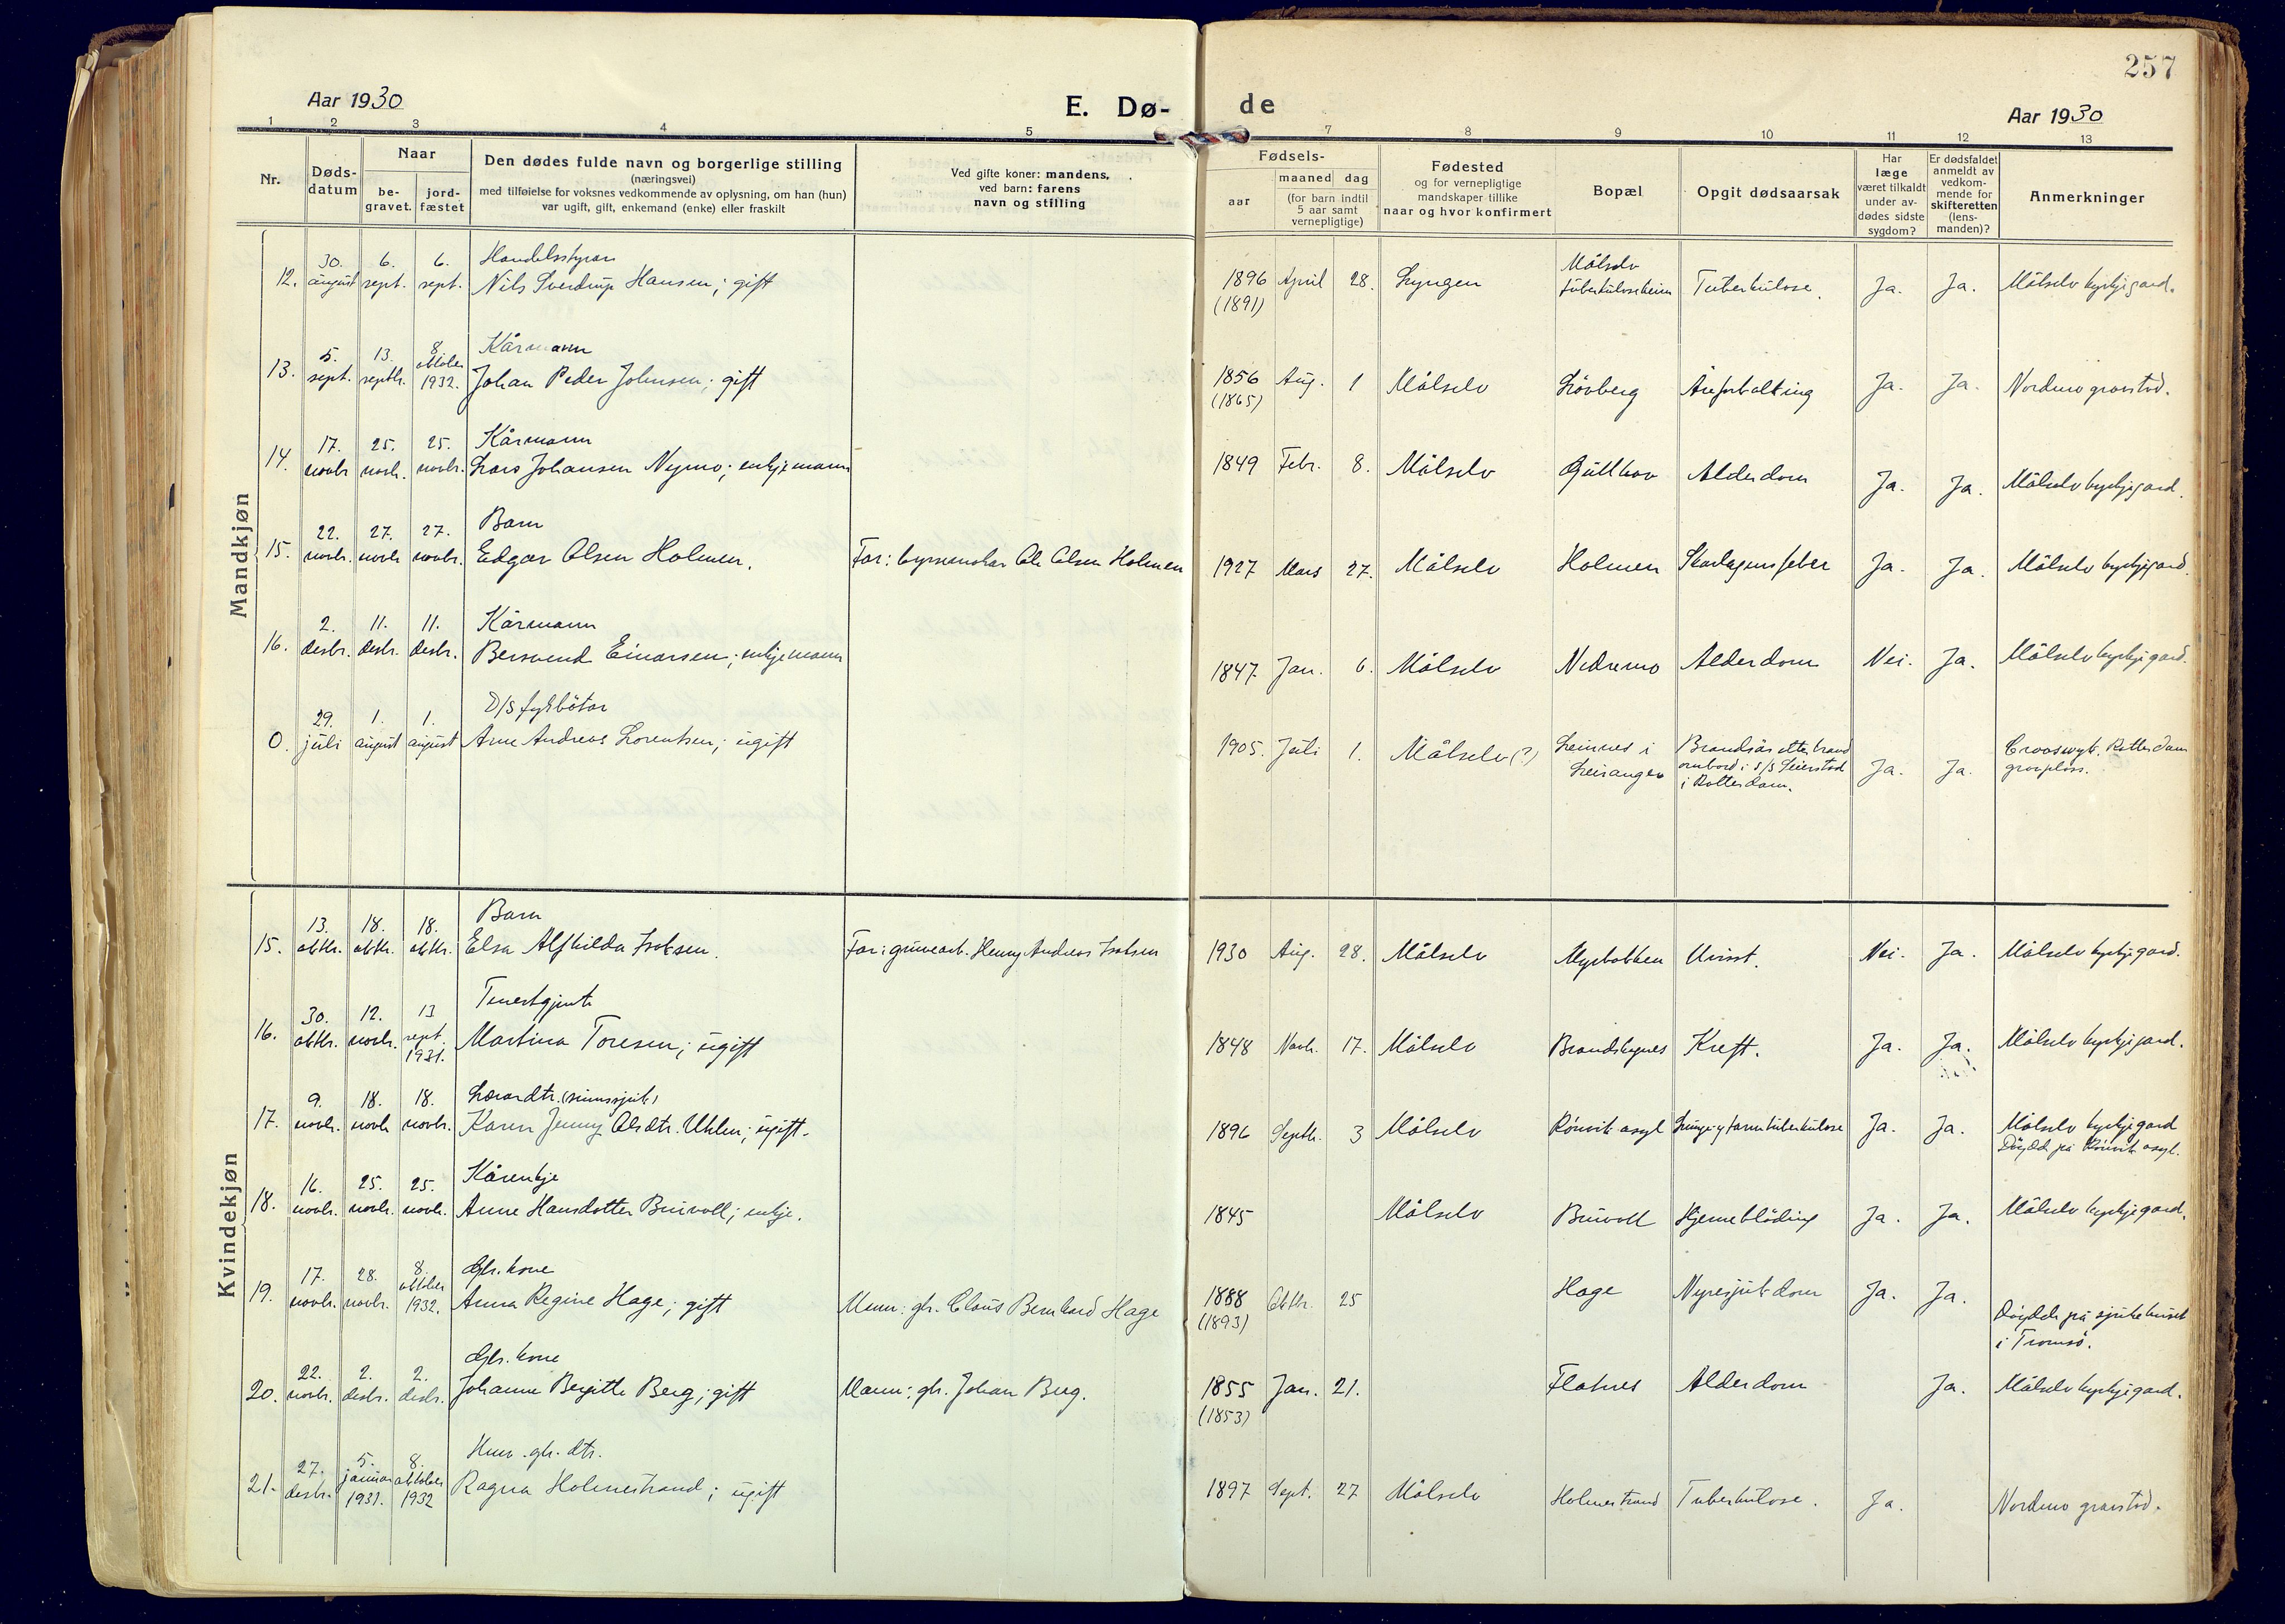 257
Aar 1930
E. Dø-
de
Aar 1930
1 2 3 4 5 7 8 9 10 11 12 13
Nr.
Døds-
datum
Naar
be-
gravet.
jord-
fæstet
Den dødes fulde navn og borgerlige stilling
(næringsvei)
med tilføielse for voksnes vedkommende av oplysning, om han (hun)
var ugift, gift, enkemand (enke) eller fraskilt
Ved gifte koner: mandens,
ved barn: farens
navn og stilling
Fødsels-
aar
maaned dag
(for barn indtil
5 aar samt
vernepligtige)
Fødested
og for vernepligtige
mandskaper tillike
naar og hvor konfirmert
Bopæl
Opgit dødsaarsak
Har
læge
været tilkaldt
under av-
dødes sidste
sygdom?
Er dødsfaldet
anmeldt av
vedkom-
mende for
skifteretten
(lens-
manden)?
Anmerkninger
Mandkjøn
12. 30. august 6. sept. 6. sept. Handelsstyrar
Nils Sverdrup Hansen; gift 1896 (1891) April 28. Lyngen Målselv tuberkuloseheim Tuberkulose. Ja. Ja. Målselv kyrkjegard.
13. 5. sept. 13. septbr. 8. oktober 1932. Kårmann
Johan Peder Johnsen; gift 1856 (1865) Aug. 1 Målselv Løvberg Åreforkalking Ja. Ja. Nordmo gravstad.
14. 17. novbr. 25. novbr. 25. novbr. Kårmann
Lars Johansen Nymo; enkjemann 1849 Febr. 8. Målselv Gullhav Alderdom Ja. Ja. Målselv kyrkjegard.
15. 22. novbr. 27. novbr. 27. novbr. Barn
Edgar Olsen Holmen. Far: Ole Olsen Holmen 1927 Mars 27. Målselv Holmen Skarlagensfeber Ja. Ja. Målselv kyrkjegard.
16. 2. desbr. 11. desbr. 11. desbr. Kårmann
Bersvend Einarsen; enkjemann 1847 Jan. 6. Målselv Nedremo Alderdom Nei. Ja. Målselv kyrkjegard.
0. 29. juli 1. august 1. august D/S fyrbötar
Arne Andreas Lorentsen; ugift 1905. Juli 1. Målselv (?) Leines i Leiranger Brandsår etter brand ombord i S/S Leierstad i Rotterdam. Ja. Ja. Crooswyk. Rotterdam gravplass.
Kvindekjøn
15. 13. oktbr. 18. oktbr. 18. oktbr. Barn
Elsa Alfhilda Isaksen. Far: gruvearb. Henry Andreas Isaksen 1930 Aug. 28. Målselv Myrbakken Uvisst. Nei. Ja. Målselv kyrkjegard.
16. 30. oktbr. 12. novbr. 13 sept. 1931. Tenestgjente
Martina Toresen; ugift 1848 Novbr. 17. Målselv Brandskognes Kreft. Ja. Ja. Målselv kyrkjegard.
17. 9. novbr. 18. novbr. 18. novbr. Lærardtr. (sinnssjuk)
Karen Jenny Olsdtr. Uhlen; ugift. 1896 Septbr. 3 Målselv Rönvik asyl Lunge og tarmtuberkulose Ja. Ja. Målselv kyrkjegard Døydd på Rönvik asyl.
18. 16. novbr. 25. novbr. 25. novbr. Kårenkje
Anne Hansdotter Buivoll; enkje. 1845 Målselv Buivoll Hjerneblöding Ja. Ja. Målselv kyrkjegard.
19. 17. novbr. 28. novbr. 8. oktober 1932. Gbr. kone
Anna Regine Hage; gift Mann: gbr. Claus Bernhard Hage 1888 (1893) Oktbr. 25 Hage Nyresjukdom Ja. Ja. Döydde på sjukehuset i Tromsö.
20. 22. novbr. 2. desbr. 2. desbr. Gbr. kone
Johanne Birgitte Berg; gift Mann: gbr. Johan Berg. 1855 (1853) Jan. 21. Flatnes Alderdom Ja. Målselv kyrkjegard.
21. 27. desbr. 5. januar 1931. 8. oktober 1932 gbr. dtr.
Ragna Holmestrand; ugift 1897 Sept. 27 Målselv Holmestrand Tuberkulose. Ja. Nordmo gravstad.